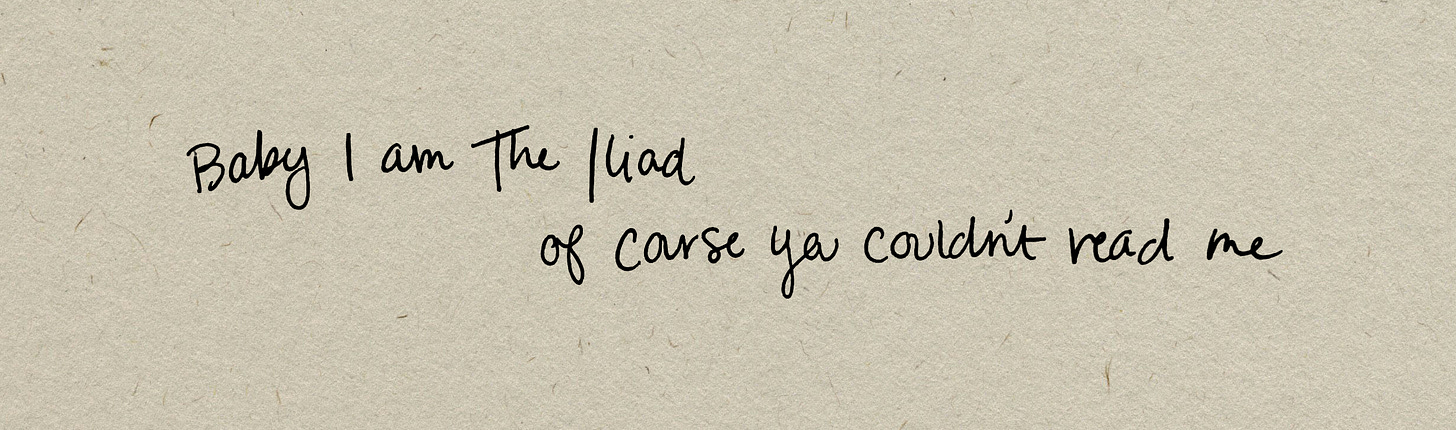 Baby I am The Iliad
of course you couldn't read me